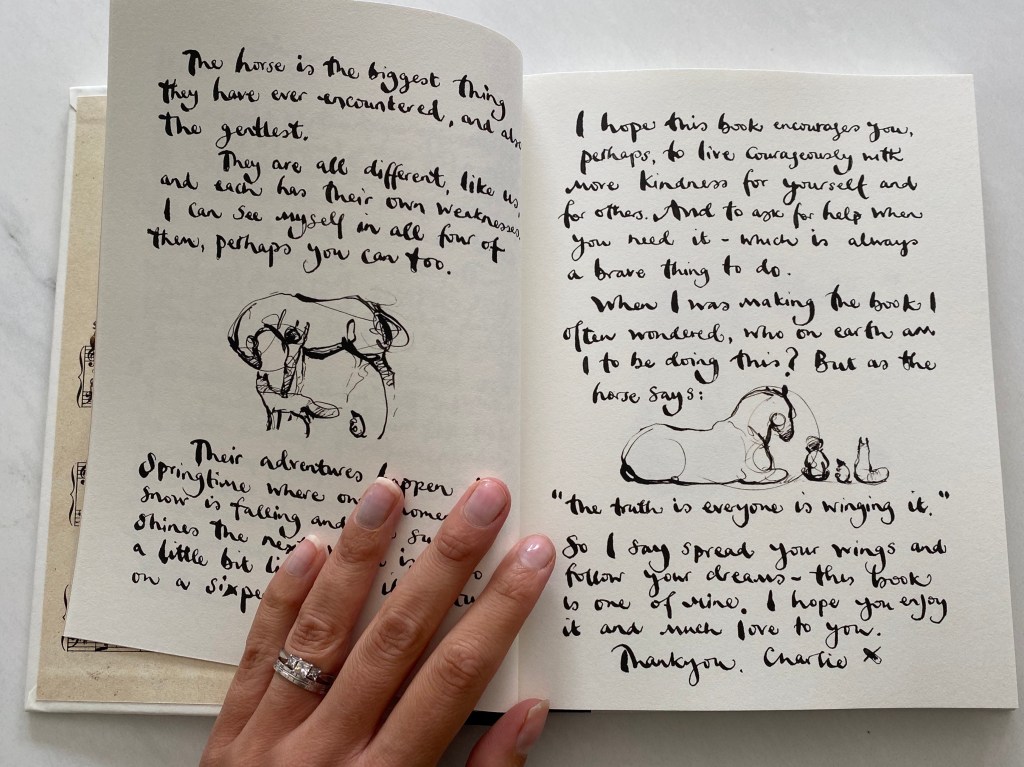 The horse is the biggest thing
they have ever encountered, and also
the gentlest.
They are all different, like us,
and each has their own weaknesses.
I can see myself in all four of
them, perhaps you can too.
Their adventures happen
Springtime where one
snow is falling and
shines the
a little bit
on a
I hope this book encourages you,
perhaps, to live courageously with
more kindness for yourself and
for others. And to ask for help when
you need it - which is always
a brave thing to do.
When I was making the book I
often wondered, who on earth am
I to be doing this? But as the
horse says:
"the truth is everyone is winging it."
So I say spread your wings and
follow your dreams - this book
is one of mine. I hope you enjoy
it and much love to you.
Thankyou. Charlie x